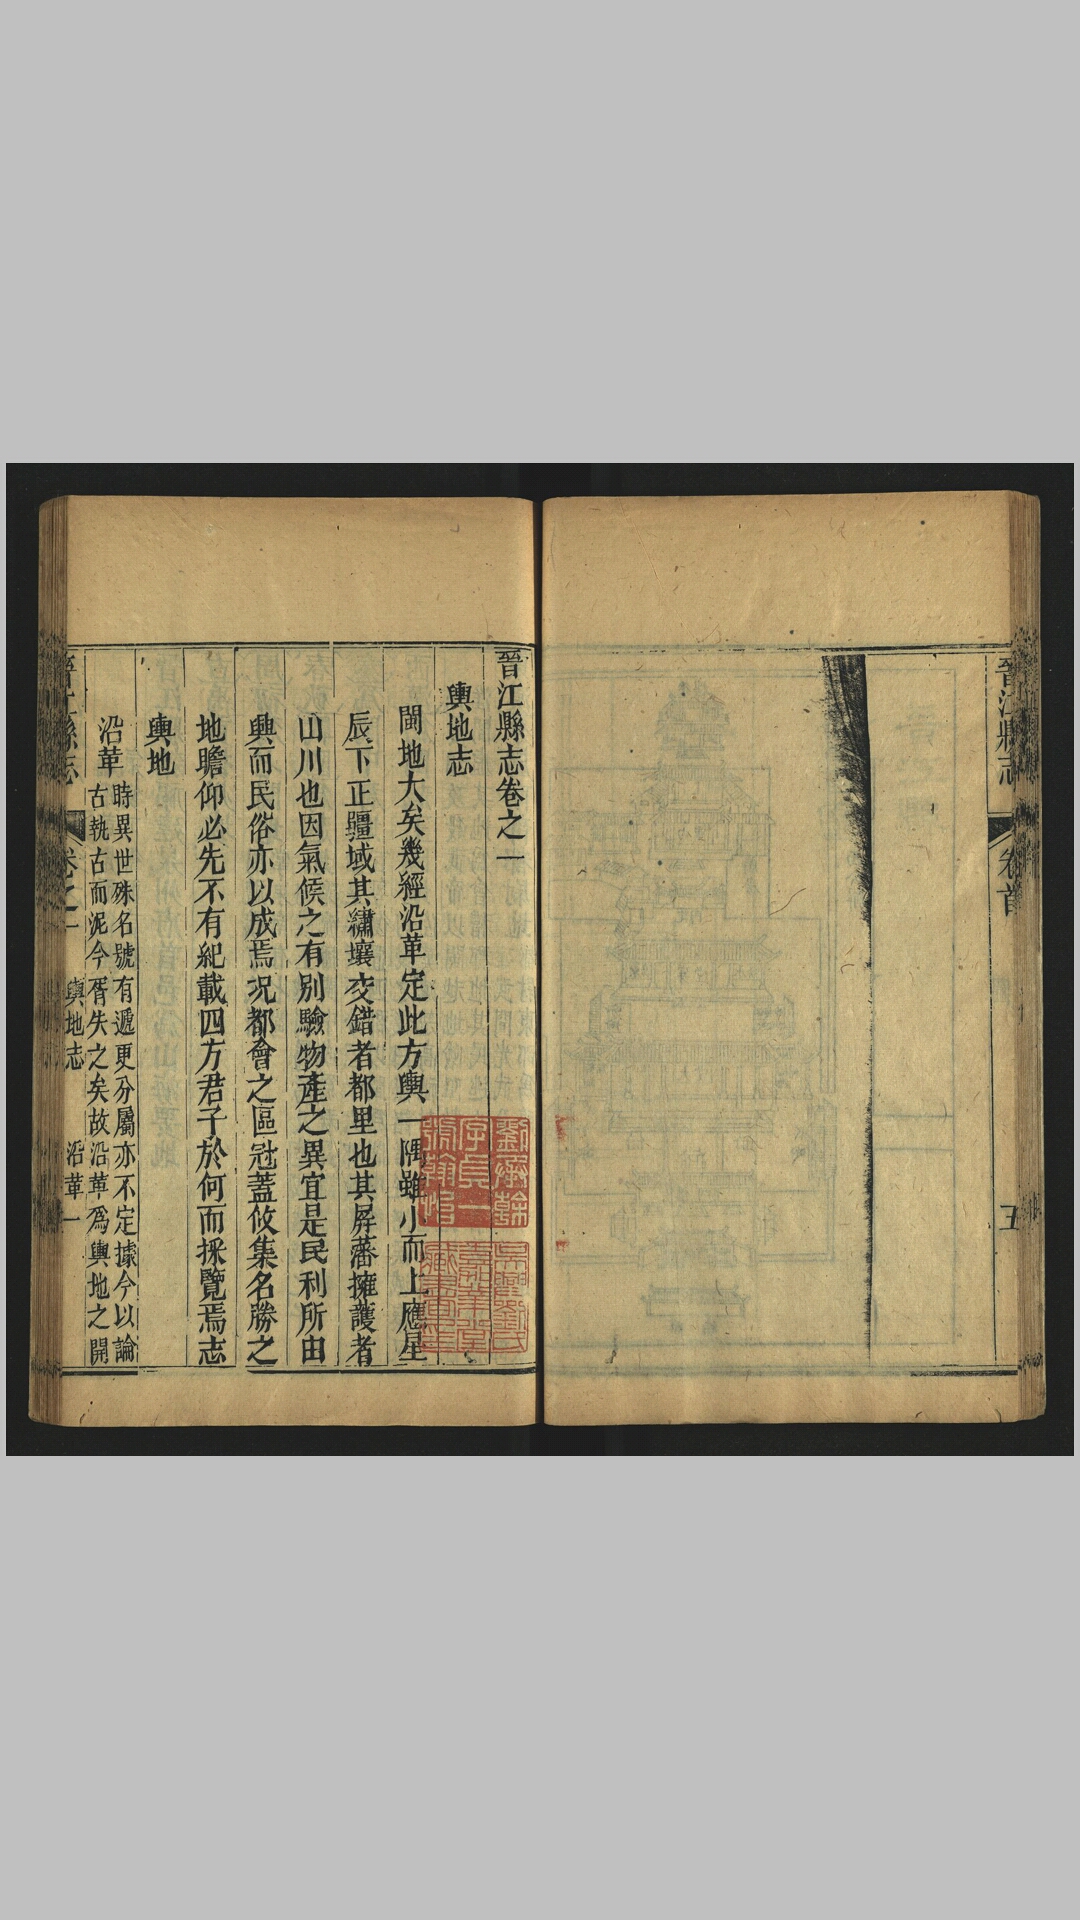 晉江縣志
卷首
五
晉江縣志卷之一
輿地志
閩地大矣幾經沿革定此方輿一隅雖小而上應星
辰下正疆域其繡壤交錯者都里也其屏藩擁護者
山川也因氣候之有別驗物產之異宜是民利所由
興而民俗亦以成焉况都會之區冠蓋攸集名勝之
地瞻仰必先不有紀載四方君子於何而採覽焉志
輿地
沿革
時異世殊名號有遞更分屬亦不定據今以論
古執古而泥今胥失之矣故沿革爲輿地之開
晉江縣志
卷之一
輿地志
沿革
一
劉承幹
字貞一
號翰怡
吳興劉氏
嘉業堂
藏書印